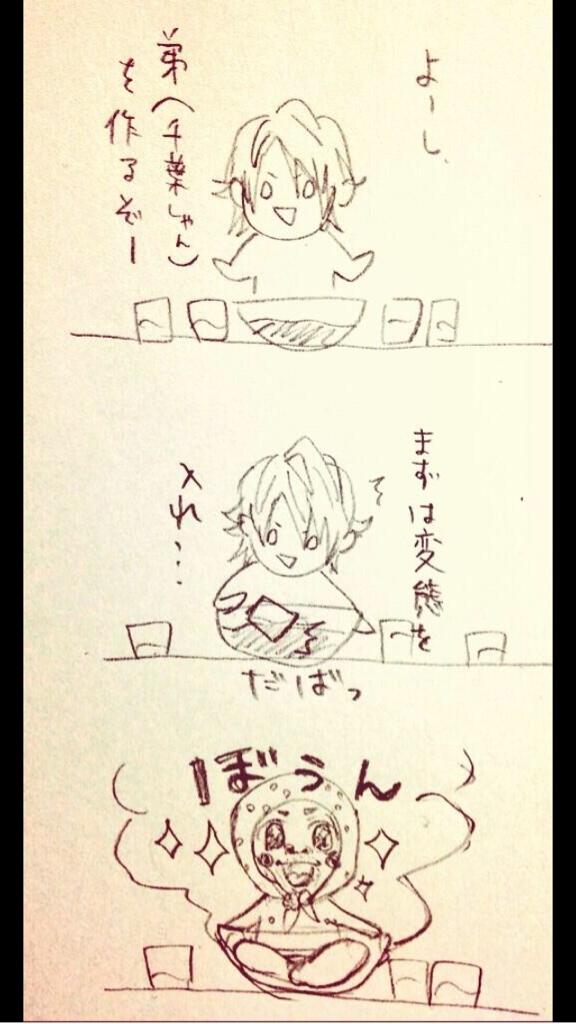 よーし、
弟(千葉しゃん)
を作るぞー
まずは変態を
入れ…
だばっ
ぼうん